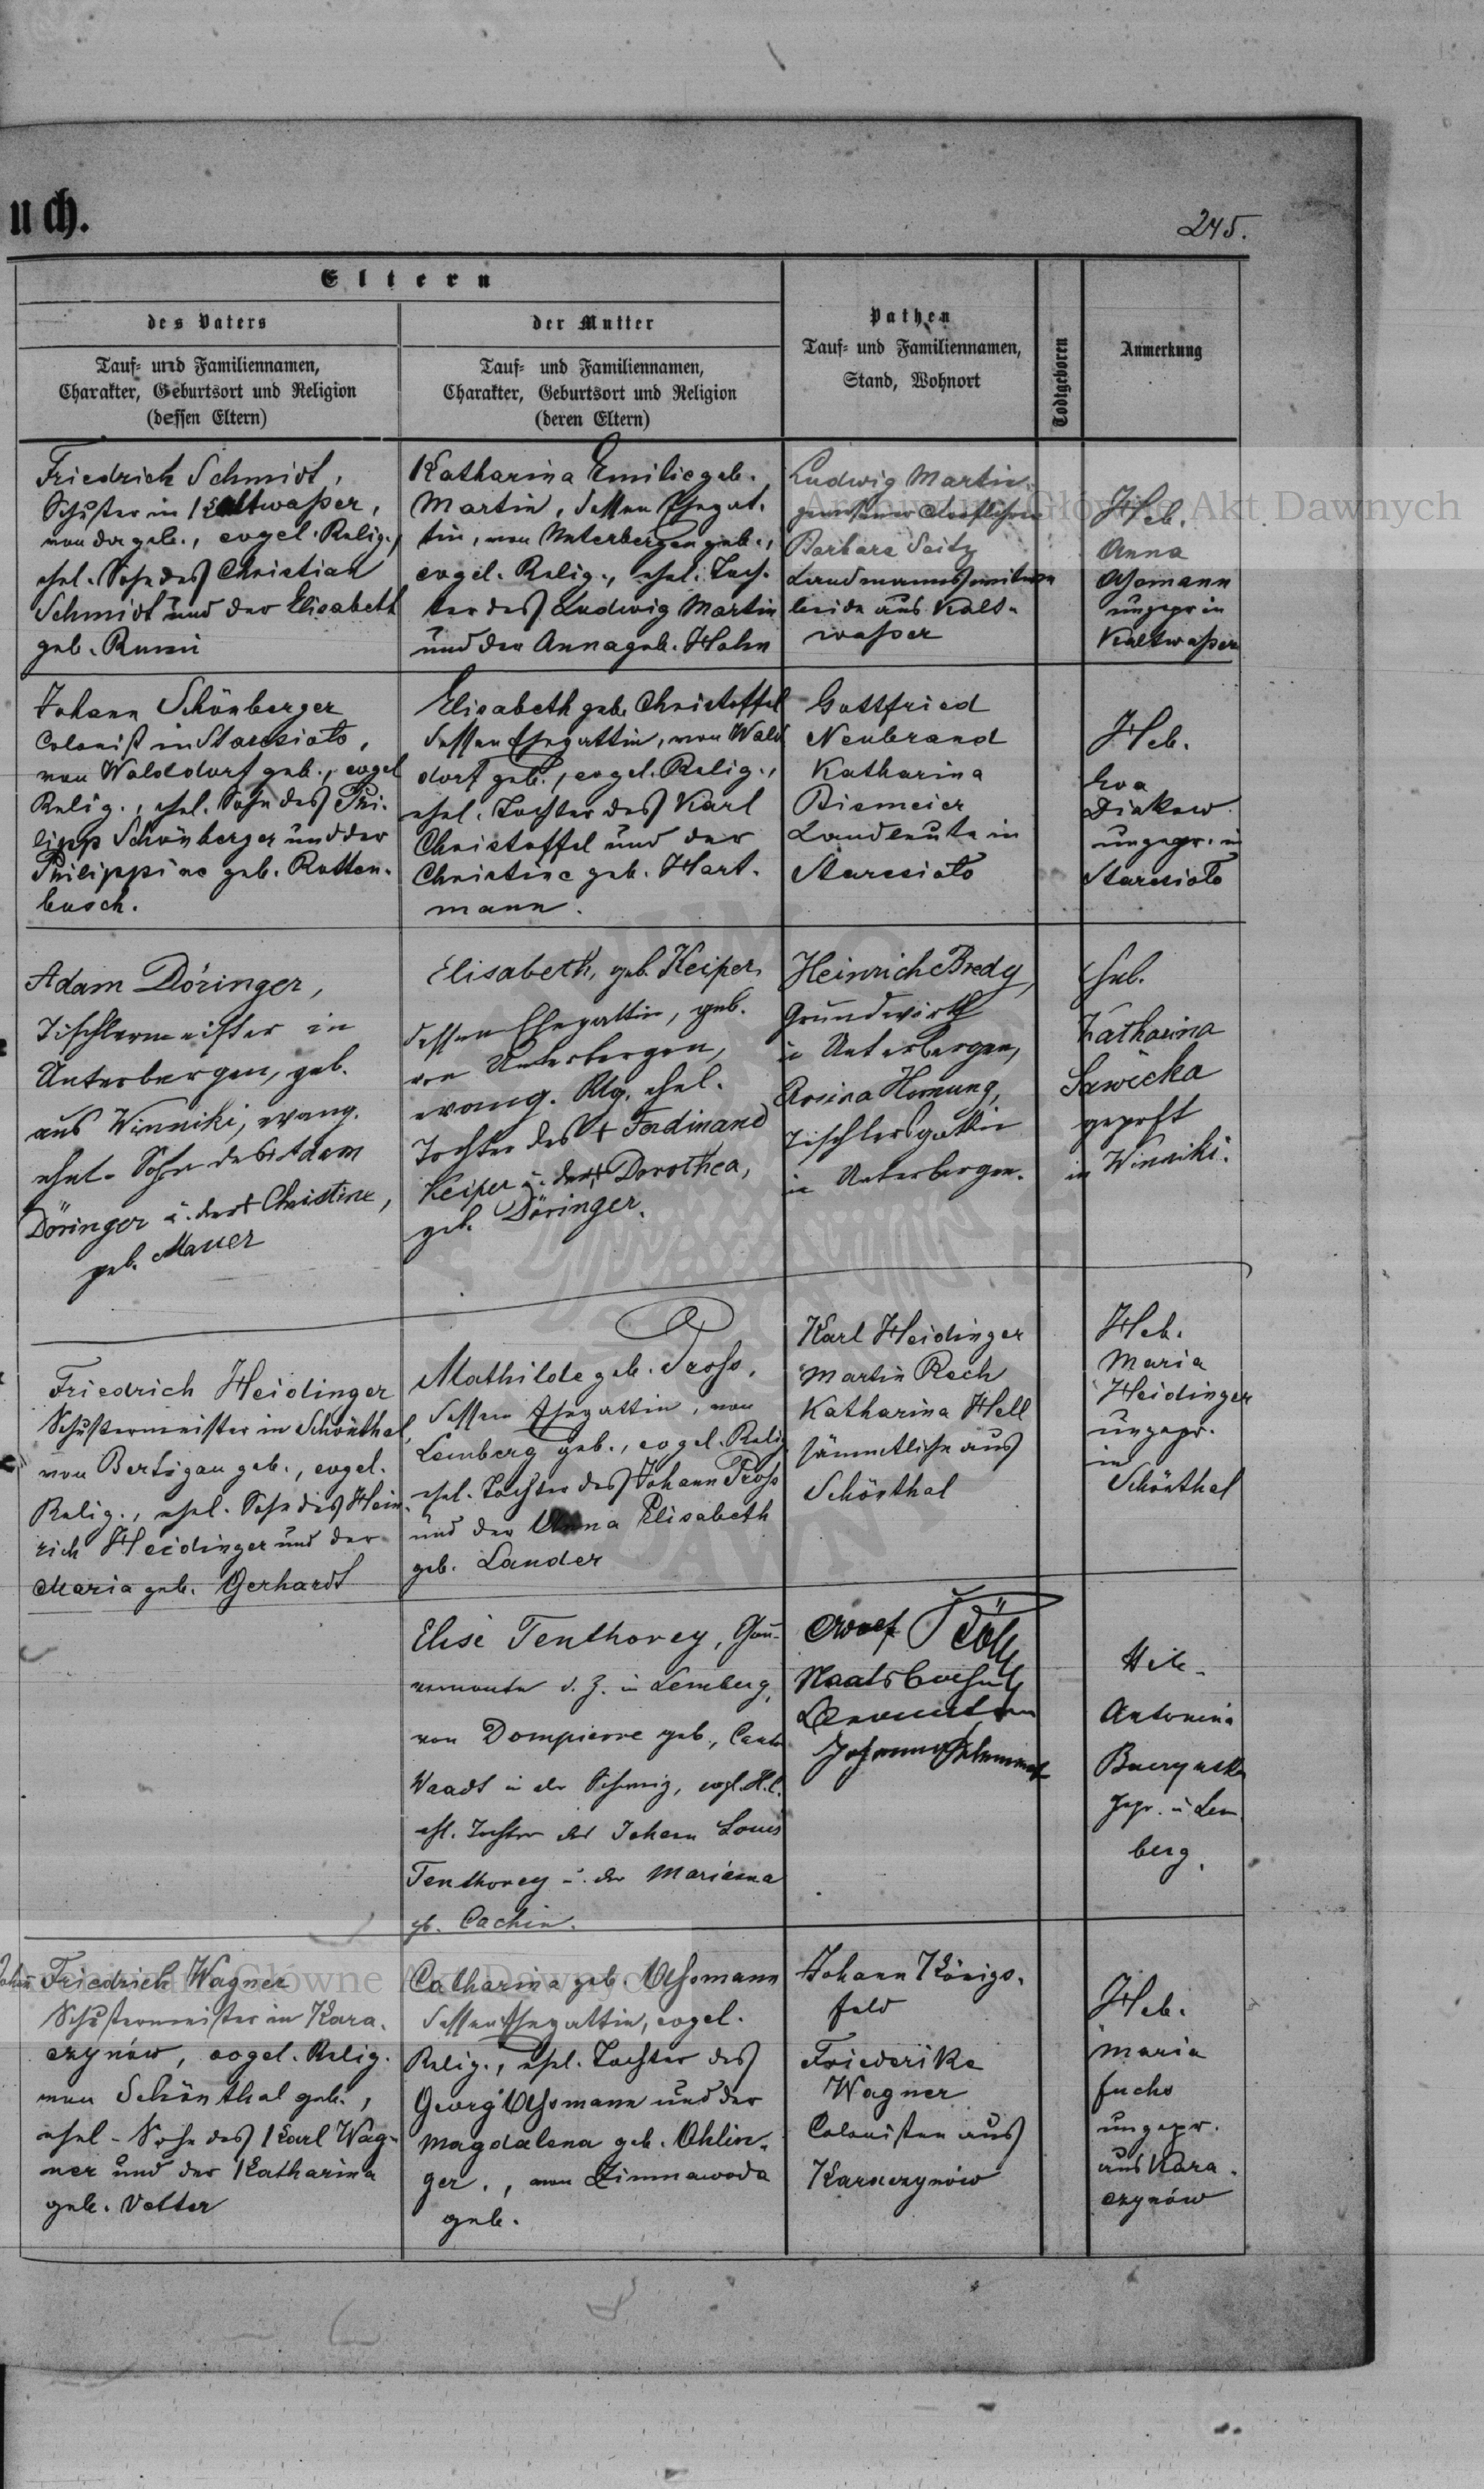 uch.
245.
Eltern
des Vaters
Tauf- und Familiennamen,
Charakter, Geburtsort und Religion
(dessen Eltern)
der Mutter
Tauf- und Familiennamen,
Charakter, Geburtsort und Religion
(deren Eltern)
Pathen
Tauf- und Familiennamen,
Stand, Wohnort
Todtgeboren
Anmerkung
Friedrich Schmidt,
Schuster in Kaltwaßer,
von da geb., evgel. Relig.,
ehel. Sohn des Christian
Schmidt und der Elisabeth
geb.
Katharina Emilie geb.
Martin, dessen Ehegat-
tin, von Unterbergen geb.,
evgel. Relig., ehel. Toch-
ter des Ludwig Martin
und der Anna geb. Hahn
Ludwig Martin
Barbara Seitz
beide aus Kalt-
waßer
Heb.
Anna
Ußmann
ungepr in
Kaltwaßer
Johann Schönberger
Colonist in Starcsiolo,
von Walddorf geb., evgel
Relig., ehel. Sohn des Phi-
lipp Schönberger und der
Philippine geb. Rotten-
busch.
Elisabeth geb. Christoffel
dessen Ehegattin, von Wald
dorf geb., evgel. Relig.,
ehel. Tochter des Karl
Christoffel und der
Christine geb. Hart-
mann.
Gottfried
Neubrand
Katharina
Biemeier
Landleute in
Starcsiolo
Heb.
Eva
Diakow
ungepr. in
Starcsiolo
Adam Döringer,
Tischlermeister in
Unterbergen, geb.
aus Winniki, evang.
ehel. Sohn des Adam
Döringer u. der † Christine,
geb. Mauer
Elisabeth, geb. Keiper,
dessen Ehegattin, geb.
von Unterbergen,
evang. Rlg. ehel.
Tochter des † Ferdinand
Keiper u. der † Dorothea,
geb. Döringer.
Heinrich Bredy,
Grundwirth
in Unterbergen,
Rosina Hornung,
Tischlersgattin
in Unterbergen.
Heb.
Katharina
Sawicka
geprft
in Winniki.
Friedrich Heidinger
Schustermeister in Schönthal,
von Bertigau geb., evgel.
Relig., ehel. Sohn des Hein-
rich Heidinger und der
Maria geb. Gerhardt
Mathilde geb. Pross,
dessen Ehegattin, von
Lemberg geb., evgel. Relig
ehel. Tochter des Johann Pross
und der Anna Elisabeth
geb. Lander
Karl Heidinger
Martin Rech
Katharina Hell
sämmtliche aus
Schönthal
Heb.
Maria
Heidinger
ungepr.
in
Schönthal
Elise Tenthorey, Gou-
vernante d. Z. in Lemberg,
von Dompierre geb., Canton
Waadt in der Schweiz, evgl. H.C.
ehl. Tochter des Johann Louis
Tenthorey u. der Marianna
gb. Cachin.
Heb.
Antonina
Buczynska
gepr. in Lem
berg.
Johann Friedrich Wagner
Schustermeister in Kara-
czynów, evgel. Relig.
von Schönthal geb.,
ehel. Sohn des Karl Wag-
ner und der Katharina
geb. Vetter
Catharina geb. Ußmann
dessen Ehegattin, evgel.
Relig., ehel. Tochter des
Georg Ußmann und der
Magdalena geb. Ohlin-
ger., von Zimnawoda
geb.
Johann Königs-
feld
Friederike
Wagner
Colonisten aus
Karaczynów
Heb.
Maria
Fuchs
ungepr.
aus Kara-
czynów
Archiwum Główne Akt Dawnych